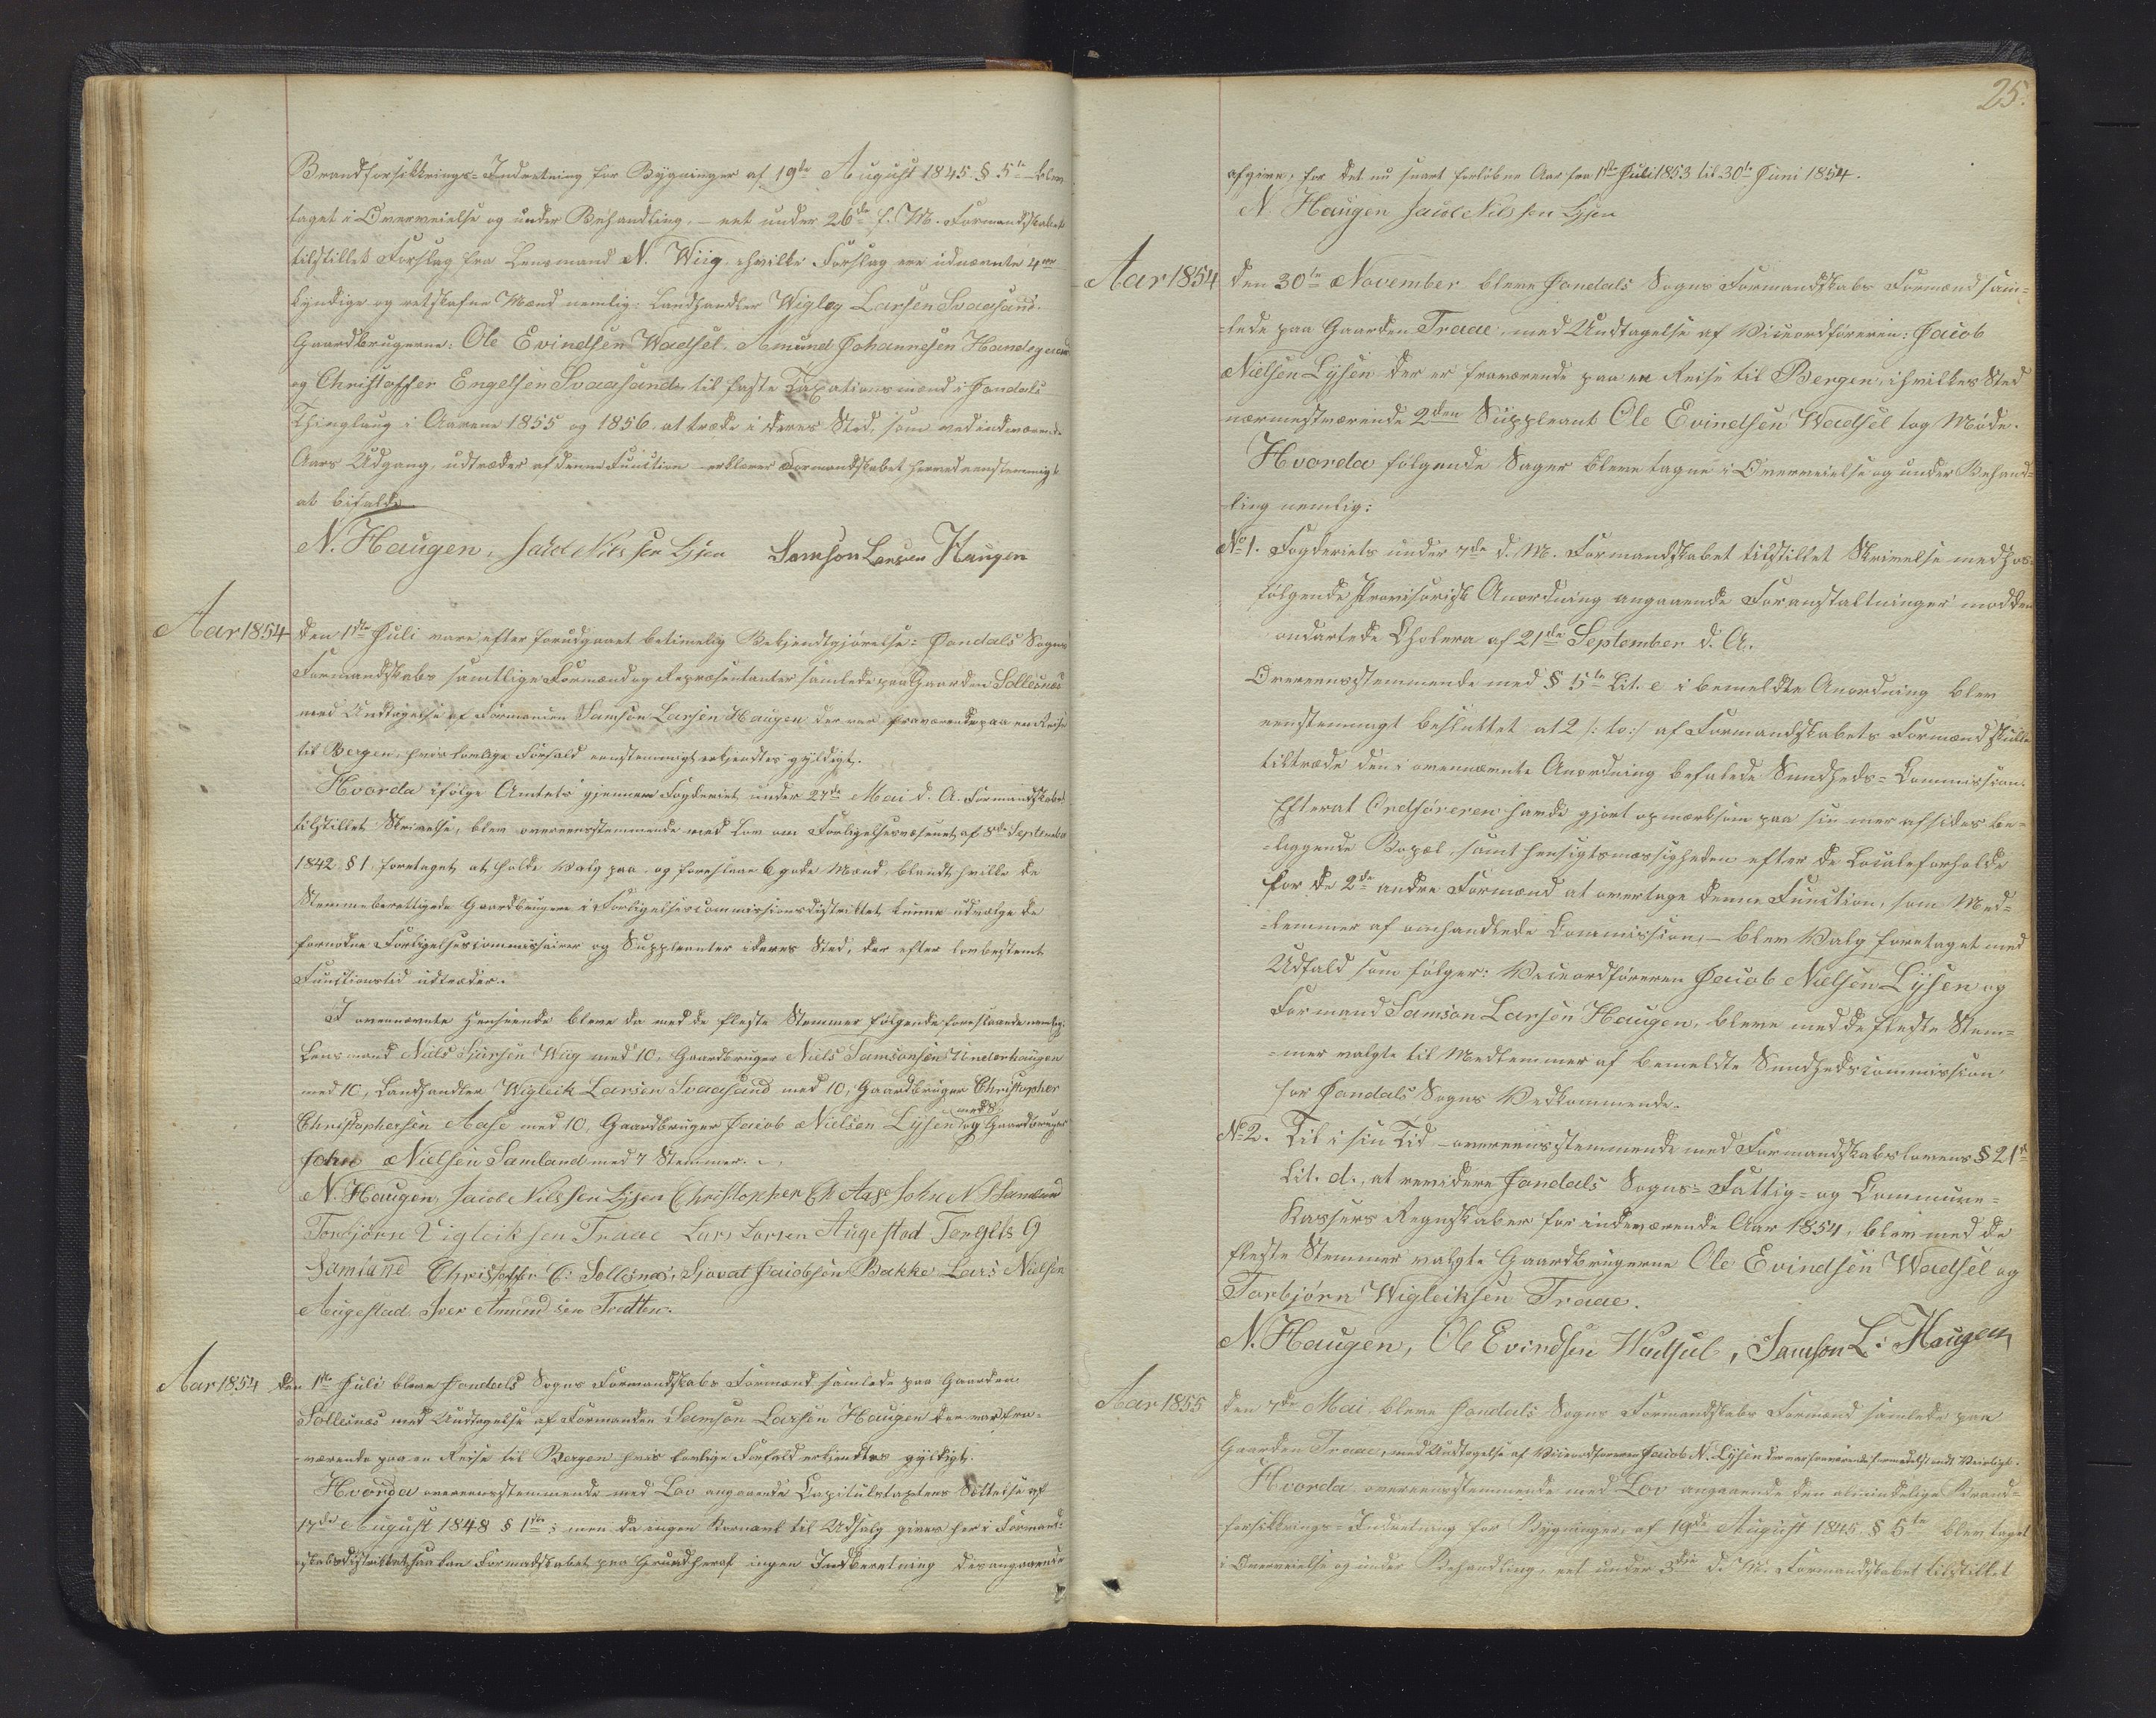 Brandforsikkrings-Indretning for Bygninger af 19de August 1845 § 5te blev
taget i Overveielse og under Behandling, - eet under 26de f. M. Formandskabet
tilstillet Forslag fra Lensmand N. Wiig, i hvilke Forslag ere udnævnte 4re
kyndige og retskafne Mænd nemlig: Landhandler Wigleg Larsen Svaasand.
Gaardbrugerne: Ole Evindsen Wadsel. Amund Johannesen Handegaard
og Christoffer Engelsen Svaasand, til faste Taxationsmænd i Jondals
Thinglaug i Aarene 1855 og 1856 at træde i deres Sted, som ved indeværende
Aars Udgang, udtræder af denne Function - erklærer Formandskabet herved eenstemmigt
at bifalde
N. Haugen, Jacob Nilssen Lysen Samson Larsen Haugen
Aar 1854 den 1ste Juli vare, efter forudgaaet betimelig Bekjendtgjørelse: Jondals Sogns
Formandskabs samtlige Formænd og Repræsentanter samlede paa Gaarden Sollesnæs
med Undtagelse af Formanden Samson Larsen Haugen der var fraværende paa en Reise
til Bergen, hvis lovlige Forfald eenstemmigt erkjendtes gyldigt.
Hvorda ifølge Amtets gjennem Fogderiet under 27de Mai d. A. Formandskabet
tilstillet Skrivelse, blev overeensstemmende med Lov om Forligelsesvæsenet af 8de September
1842 § 1, foretaget at holde Valg paa, og foreslaae 6 gode Mænd, blandt hvilke de
Stemmeberettigede Gaardbrugere i Forligelsescommissionsdistriktet kunne udvælge de
fornødne Forligelsescommissairer og Suppleanter i deres Sted, der efter lovbestemt
Functionstid udtræder.
I ovennævnte Henseende bleve da med de fleste Stemmer følgende foreslaaede nemlig:
Lensmand Niels Sjursen Wiig med 10, Gaardbruger Niels Samsonsen Underhaugen
med 10, Landhandler Wigleik Larsen Svaasand med 10, Gaardbruger Christopher
Christophersen Aase med 10, Gaardbruger Jacob Nielsen Lysen med 8 og Gaardbruger
John Nielsen Samland med 7 Stemmer.
N. Haugen, Jacob Nilssen Lysen Christopher Ch Aase John N Samland
Torbjørn Vigleiksen Traae Lars Larsen Augestad Torgels O
Samland Christoffer C: Sollesnæs, Sjovat Jacobsen Bakke Lars Nielsen
Augestad. Iver Amundsen Tvedten.
Aar 1854 den 1ste Juli bleve Jondals Sogns Formandskabs Formænd samlede paa Gaarden
Sollesnæs med Undtagelse af Formanden Samson Larsen Haugen der var fra-
-værende paa en Reise til Bergen hvis lovlige Forfald erkjendtes gyldigt.
Hvorda overeensstemmende med Lov angaaende Capitulstaxtens Sættelse af
17de August 1848 § 1ste; men da ingen Kornavl til Udsalg gives her i Formand-
skabsdistriktet, saa kan Formandskabet paa Grund heraf ingen Indberetning desangaaende
25.
afgive, for det nu snart forløbne Aar fra 1ste Juli 1853 til 30te Juni 1854.
N. Haugen Jacob Nilssen Lysen
Aar 1854 den 30te November bleve Jondals Sogns Formandskabs Formænd sam-
-lede paa Gaarden Traae, med Undtagelse af Viceordføreren: Jacob
Nielsen Lysen der er fraværende paa en Reise til Bergen, i hvilkes Sted
nærmestværende 2den Suppleant Ole Evindsen Wadsel tog Møde.
Hvorda følgende Sager bleve tagne i Overveielse og under Behand-
-ling nemlig:
No 1. Fogderiets under 7de d. M. Formandskabet tilstillet Skrivelse med hos-
følgende Provisorisk Anordning angaaende Foranstaltninger mod den
ondartede Cholera af 21de September d. A.
Overeensstemmende med § 5te Lit. e i bemeldte Anordning blev
eenstemmigt besluttet at 2 /: to :/ af Formandskabets Formænd skulle
tiltræde den i ovennævnte Anordning befalede Sundheds-Commission.
Efterat Ordføreren havde gjort opmærksom paa sin mer afsides be-
-liggende Bopæl, samt Hensigtsmæssigheden efter de Localeforholde
for de 2de andre Formænd at overtage denne Function, som Med-
-lemmer af omhandlede Commission, - blev Valg foretaget med
Udfald som følger: Viceordføreren Jacob Nielsen Lysen og
Formand Samson Larsen Haugen, bleve med de fleste Stem-
-mer valgte til Medlemmer af bemeldte Sundhedscommission
for Jondals Sogns Vedkommende.
No 2. Til i sin Tid - overeensstemmende med Formandskabslovens § 21de
Lit. d., at revidere Jondals Sogns- Fattig- og Commune-
Kassers Regnskaber for indeværende Aar 1854, bleve med de
fleste Stemmer valgte Gaardbrugerne Ole Evindsen Wadsel og
Torbjørn Wigleiksen Traae.
N. Haugen, Ole Evindsen Wadsel, Samson L: Haugen
Aar 1855 den 7de Mai bleve Jondals Sogns Formandskabs Formænd samlede paa
Gaarden Traae, med Undtagelse af Viceordføreren Jacob N. Lysen der var fraværende formedelst ondt Veirligt.
Hvorda overeensstemmende med Lov angaaende den almindelige Brand-
forsikkrings-Indretning for Bygninger af 19de August 1845. § 5te blev taget
i Overveielse og under Behandling, eet under 3die d. M. Formandskabet tilstillet